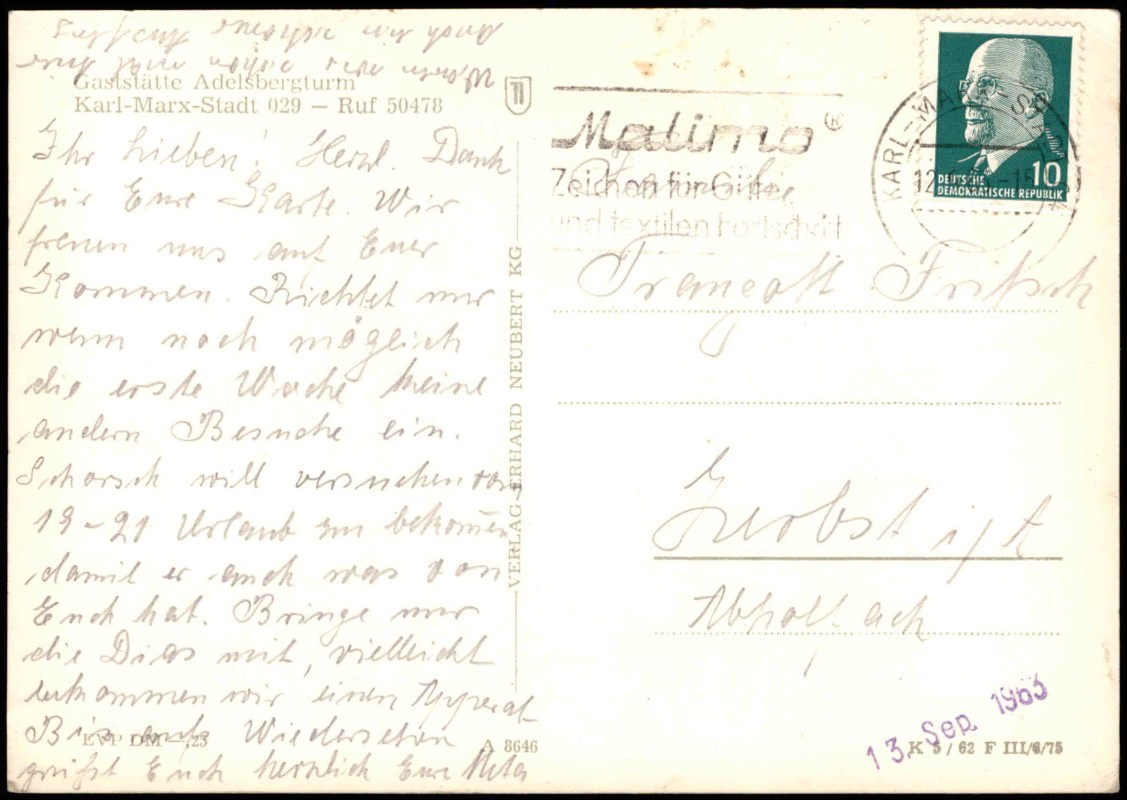 Gaststätte Adelsbergturm
Karl-Marx-Stadt 029 — Ruf 50478
Ihr Lieben! Herzl. Dank
für Eure Karte. Wir
freuen uns auf Euer
Kommen. Richtet nur
wenn noch möglich
die erste Woche keine
andern Besuche ein.
Schorsch will versuchen von
19-21 Urlaub zu bekommen
damit er auch was von
Euch hat. Bringe nur
die Dias mit, vielleicht
bekommen wir einen Apperat
Bis aufs Wiedersehn
grüßt Euch herzlich Eure
EVP DM —,23
A 8646
VERLAG ERHARD NEUBERT KG
Malimo®
Zeichen für Güte
und textilen Fortschritt
KARL-MARX-STADT
10
DEUTSCHE
DEMOKRATISCHE REPUBLIK
Familie
Traugott Fritsch
13. Sep. 1963
K 5/62 F III/6/75